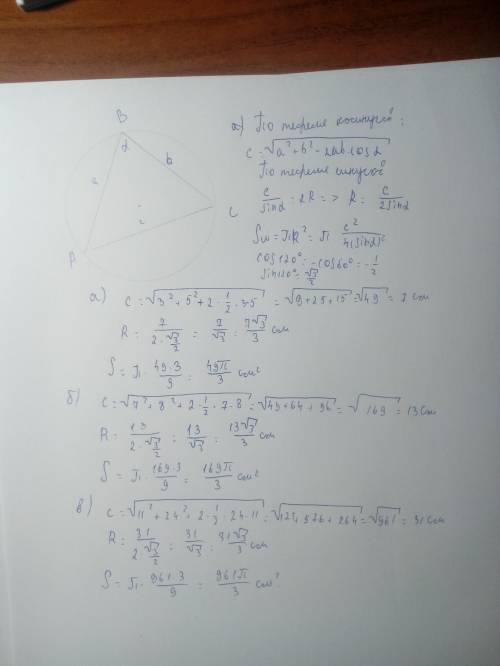 B
α
a
b
c
C
A
α) По теореме косинусов:
c = √(a² + b² - 2ab cos α)
По теореме синусов
c/sin α = 2R => R = c/(2 sin α)
Sω = πR² = π c²/(4(sin α)²)
cos 120° = -cos 60° = -1/2
sin 120° = √3/2
а) c = √(3² + 5² + 2·1/2·3·5) = √(9+25+15) = √49 = 7 см
R = 7/(2·√3/2) = 7/√3 = 7√3/3 см
S = π·49·3/9 = 49π/3 см²
б) c = √(7² + 8² + 2·1/2·7·8) = √(49+64+56) = √169 = 13 см
R = 13/(2·√3/2) = 13/√3 = 13√3/3 см
S = π·169·3/9 = 169π/3 см²
в) c = √(11² + 24² + 2·1/2·24·11) = √(121+576+264) = √961 = 31 см
R = 31/(2·√3/2) = 31/√3 = 31√3/3 см
S = π·961·3/9 = 961π/3 см²